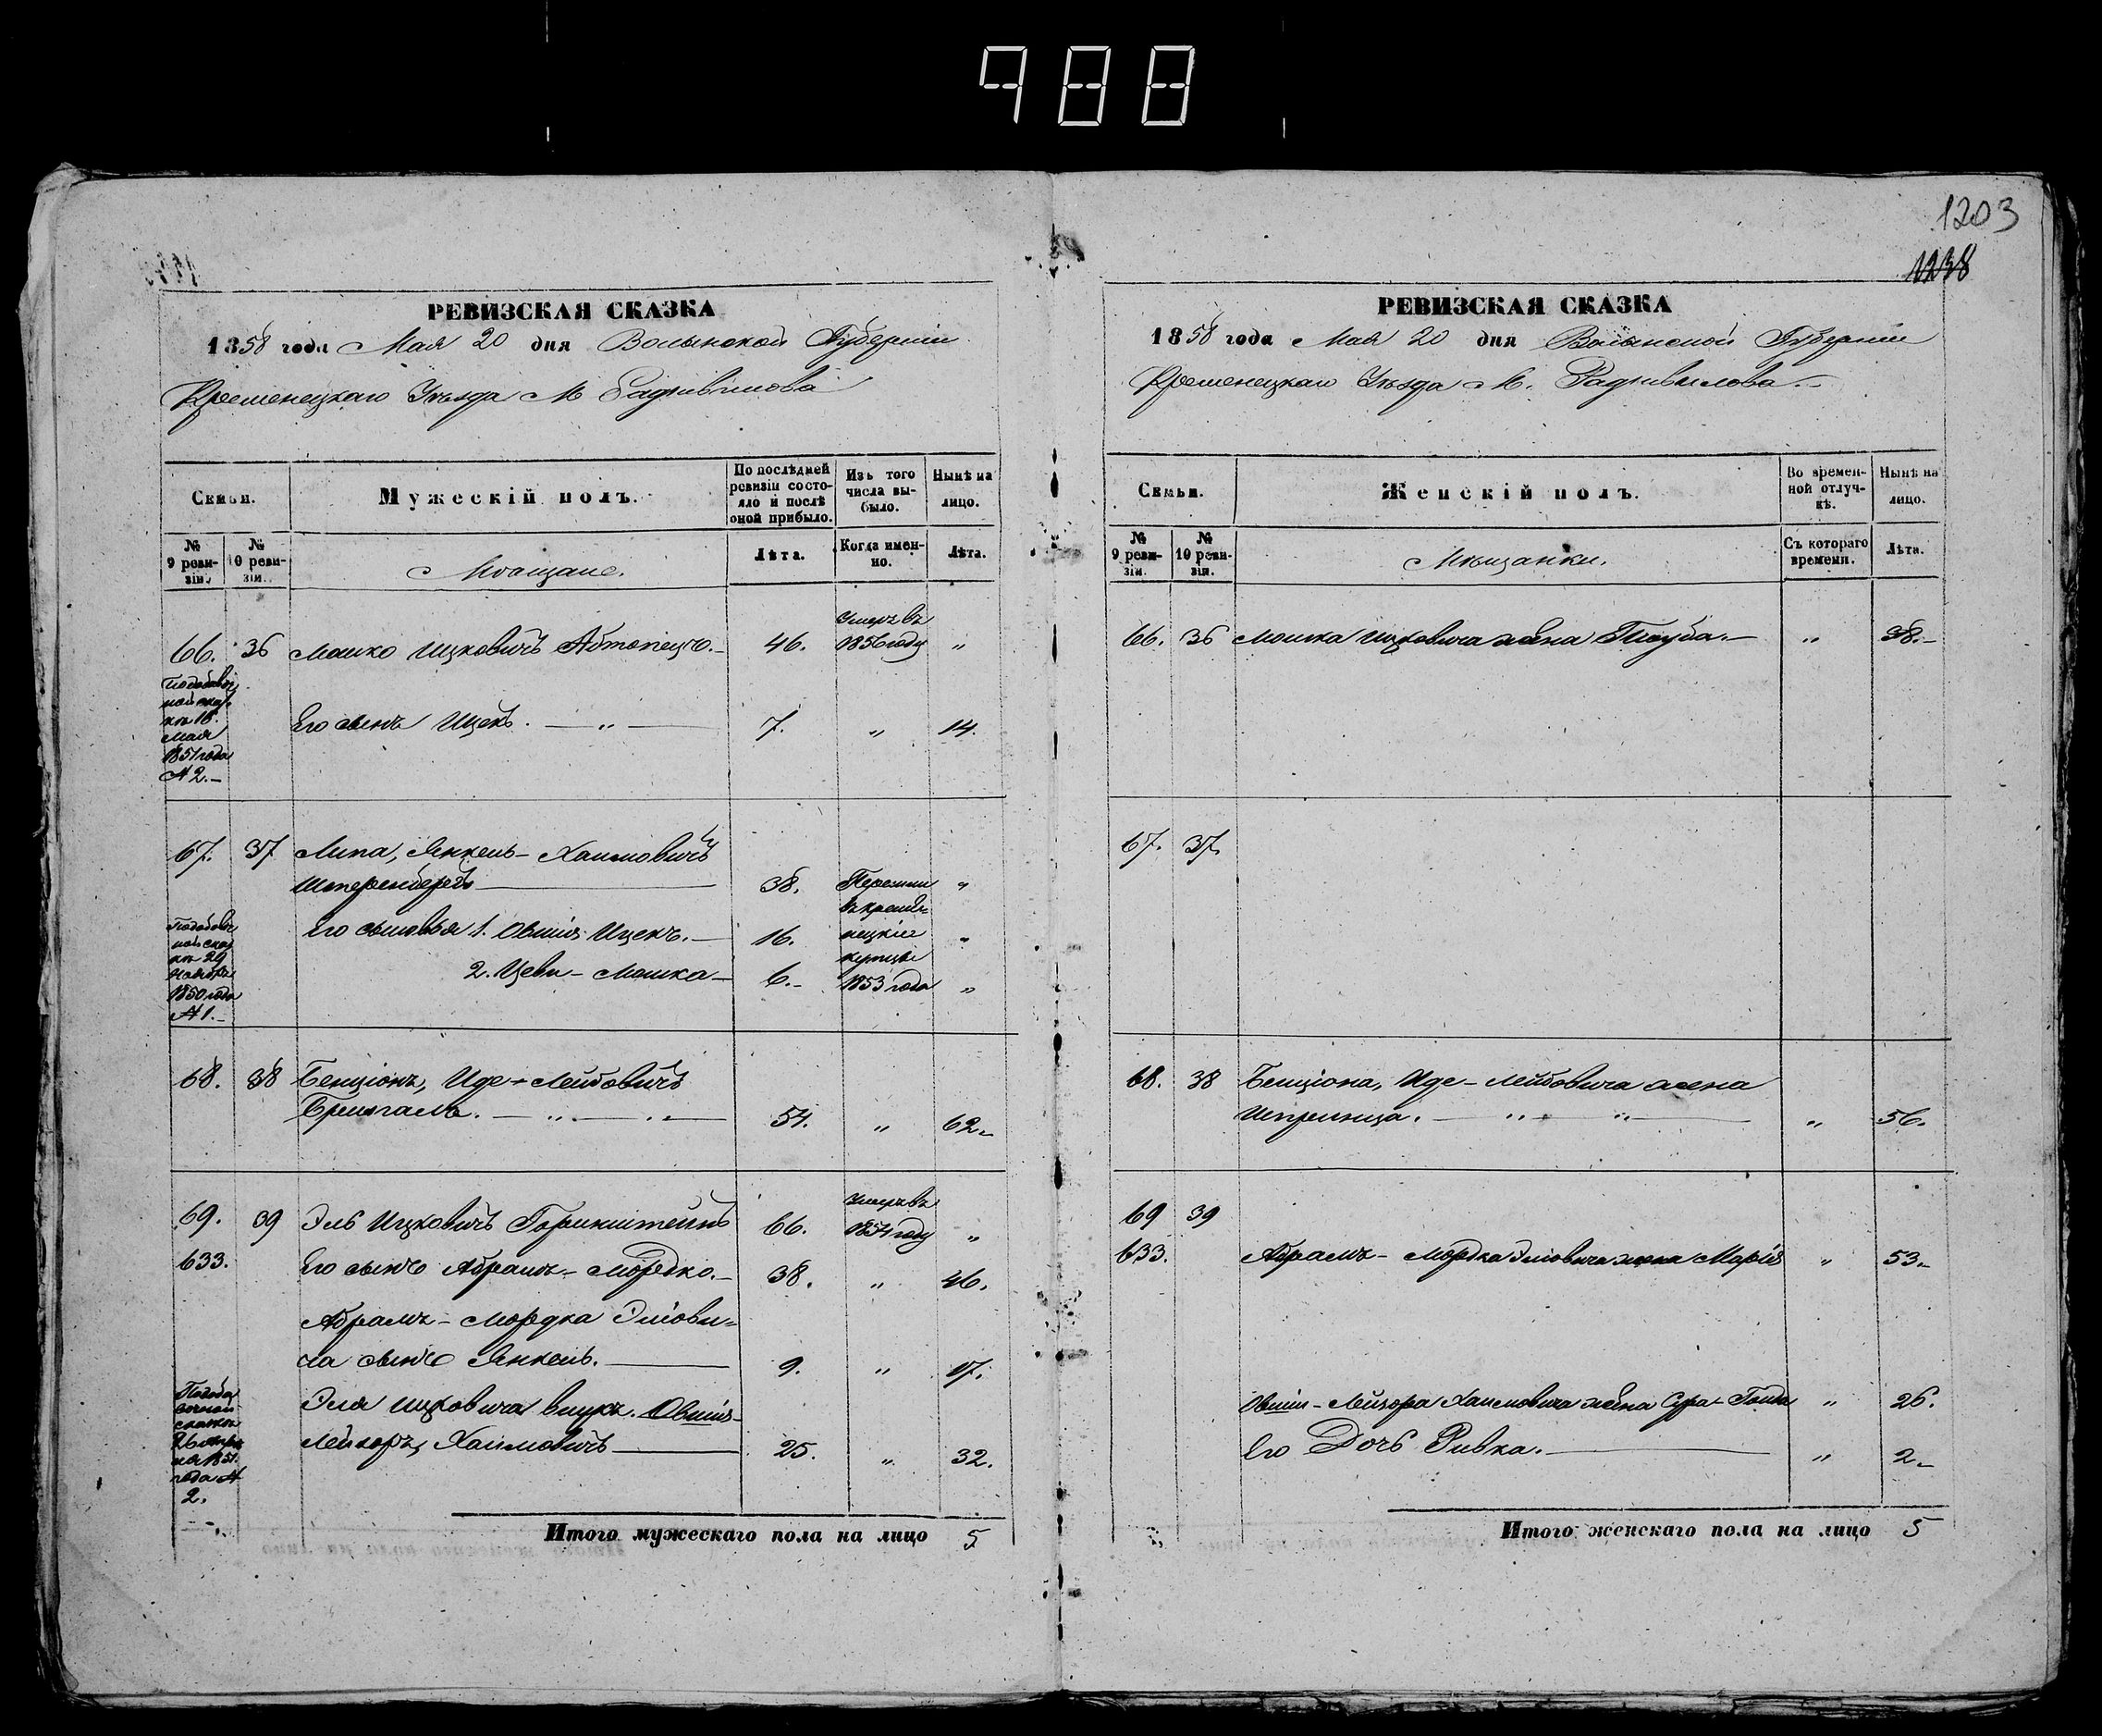 988
1203
1238
РЕВИЗСКАЯ СКАЗКА
1858 года Мая 20 дня Волынской Губерніи
Кременецкаго Уѣзда М Радзивилова
Семьи.
Мужескій полъ.
По послѣдней ревизіи состояло и послѣ оной прибыло.
Изъ того числа выбыло.
Нынѣ на лицо.
№ 9 ревизіи.
№ 10 ревизіи.
Мѣщане.
Лѣта.
Когда именно.
Лѣта.
66. 36 Мошко Ицковичъ 46. Умеръ въ 1856 году „
По добавочной сказкѣ 18 Мая 1851 года № 2.—
Его сынъ Ицекъ. — „ — 7. „ 14.
67. 37 Липа, Янкель - Хаимовичъ
Штеренбергъ — 38. Перешли „
По добавочной сказкѣ 29 Ноября 1850 года № 1.—
Его сыновья 1. Овшія Ицекъ. — 16. въ кременецкіе „
2. Цеви - Мошка — 6.— купцы 1853 года „
68. 38 Бенціонъ, Иде - Лейбовичъ
— „ — „ — 54. „ 62.—
69. 39 Эль Ицковичъ Горинштейнъ 66. Умеръ въ 1854 году „
633. Его сынъ Абрамъ - Мордко. — 38. „ 46.
Абрамъ - Мордка Эліови=
ча сынъ Янкель. — 9. „ 17.
По добавочной сказкѣ 1851 года № 2.
Эля Ицковича внукъ. Овшія-
Лейзоръ, Хаимовичъ — 25. „ 32.
Итого мужескаго пола на лицо 5
РЕВИЗСКАЯ СКАЗКА
1858 года Мая 20 дня Волынской Губерніи
Кременецкаго Уѣзда М. Радзивилова.—
Семьи.
Женскій полъ.
Во временной отлучкѣ.
Нынѣ на лицо.
№ 9 ревизіи.
№ 10 ревизіи.
Мѣщанки.
Съ котораго времени.
Лѣта.
66. 36 Мошка Ицковича жена Тауба.— „ 38.—
67. 37.
68. 38 Бенціона, Иде - Лейбовича жена
Шпринца. — „ — „ — „ 56.
69 39
633. Абрамъ - Мордка Эліовича жена Марія „ 53.—
Овшіи - Лейзора Хаимовича жена Сура - „ 26.
Его Дочь Ривка. — „ 2.—
Итого женскаго пола на лицо 5